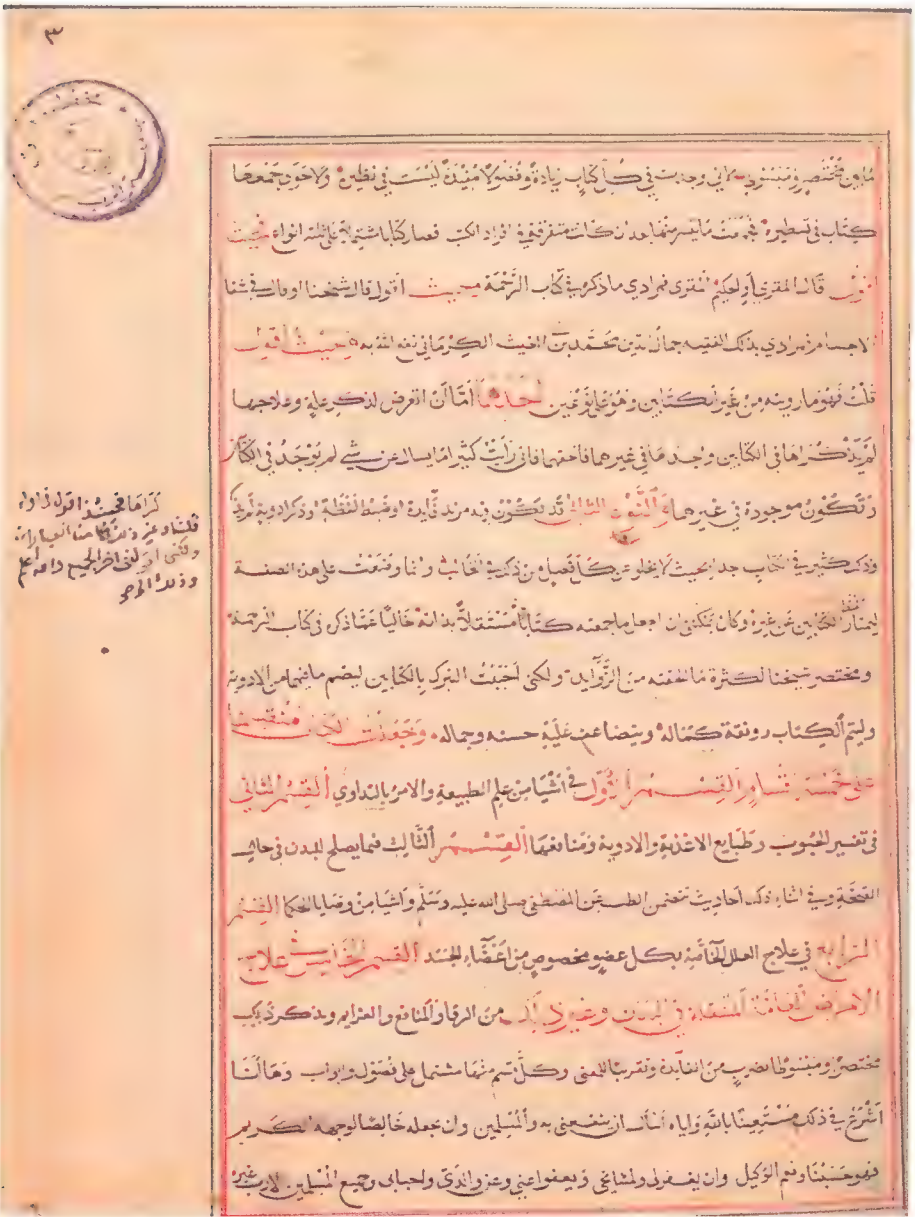 ٣
ما بين مختصر ومبسوط لاني وجدت في كل كتاب زيادة وفضولا مفيدة ليست في نظيره ولاحوي جمعها
كتاب في تسطيره فجمعت ما تيسر منها بعد ان كانت متفرقة في افراد الكتب فصار كتابا مشتملا على ثلثه انواع فحيث
اقول قال المقري او الحكيم المقرى فمرادي ما ذكره في كتاب الرحمة وحيث اقول قال شيخنا او قال في شفا
الاجسام فمرادي بذلك الفقيه جمال الدين محمد بن ابي الغيث الكرماني نفع الله به وحيث اقول
قلت فهو ما رويته من غير الكتابين وهو على نوعين احدهما اما ان اتعرض لذكر علة وعلاجها
لم يذكراها في الكتابين واجدها في غيرهما فالحقها فاني رايت كثيرا ما يسال عن شي لم يوجد في الكتابين
وتكون موجودة في غيرهما والنوع الثاني قد تكون فيه مزيد فايدة او ضبط لفظة او ذكر ادوية
وذلك كثير في الكتاب جدا بحيث لا يخلو عن كل فصل من ذكره في الغالب وانما وضعت على هذه الصفة
ليمتاز لفظ الكتابين عن غيره وكان يمكنني ان اجعل ما جمعته كتابا مستقلا بذاته خاليا عما ذكره في كتاب الرحمة
ومختصر شيخنا لكثرة ما الحقته من الزوايد ولكني احببت التبرك بالكتابين ليضم ما فيهما من الادوية
وليتم الكتاب رونقة كماله ويتضاعف عليه حسنه وجماله وجعلت الكتاب منقسما
على خمسة اقسام القسم الاول في اشيا من علم الطبيعة والامر بالتداوي القسم الثاني
في تفسير الحبوب وطبايع الاغذية والادوية ومنافعها القسم الثالث فيما يصلح للبدن في حال
الصحة وفي اثناء ذلك احاديث تتضمن الطب عن المصطفى صلى الله عليه وسلم واشيا من وصايا الحكما القسم
الرابع في علاج العلل الخاصة بكل عضو مخصوص من اعضاء الجسد القسم الخامس في علاج
الامراض العامة المنتقلة في البدن وغير ذلك من الرقا والمنافع والعزايم ويذكر ذلك
مختصرا ومبسوطا لضرب من الفايدة وتقريبا للمعنى وكل قسم منها مشتمل على فصول وابواب وها انا
اشرع في ذلك مستعينا بالله واياه اسال ان ينفعني به والمسلمين وان يجعله خالصا لوجهه الكريم
فهو حسبنا ونعم الوكيل وان يغفر لي ولمشايخي ويعفوا عني وعن والدي ولاحبابي وجميع المسلمين لا رب غيره